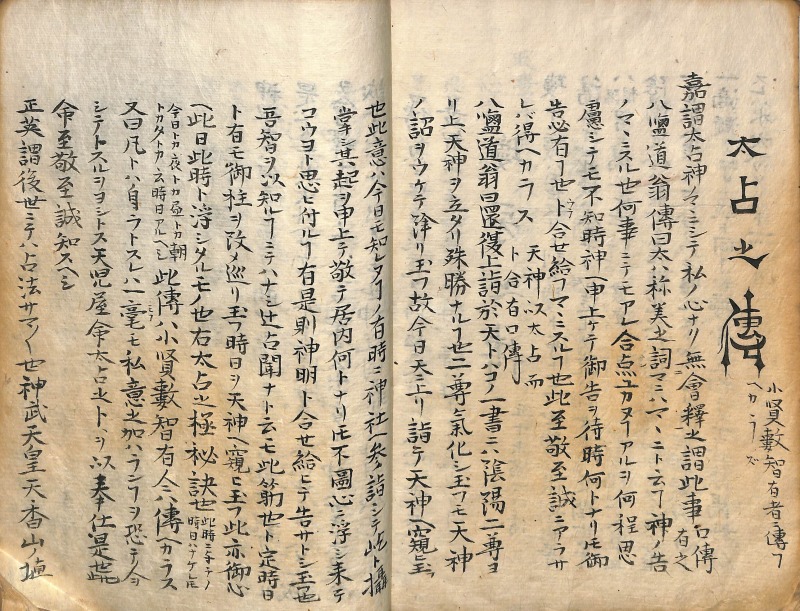 太占之傳
小賢數智有者ニ傳フ
ヘカラズ
嘉謂太占神マニシテ私ノ心ナリ無會釋之謂此事口傳
有之
八鹽道翁傳曰太ハ称美之詞マニハマヽニト云フ神ノ告
ノマヽニスル也何事ニテモアレ合点ユカヌアルヲ何程思
慮シテモ不知時神ヘ申上ケテ御告ヲ待時何トナリ𪜈御
告必有フ也ト合セ給フマヽニスル也此至敬至誠ニアラサ
レハ得ヘカラス
天神以太占而
ト合有口傳
八鹽道翁曰還復上詣於天トハコノ一書ニハ陰陽二尊ヨ
リ上、天神ヲ立タリ殊勝ナルフ也二尊氣化シ玉フモ天神
ノ詔ヲウケテ降リ玉フ故今日天ニ上リ詣ケテ天神ヘ窺ヒ玉フ
也此意ハ今日モ知レヌフノ有時ニ神社ヘ參詣シテ屹ト攝
掌シ其起ヲ申上テ敬テ居内何トナリ𪜈不圖心ニ浮シ来テ
コウヨト思ヒ付ルフ有是則神明ト合セ給ヒテ告サトシ玉フ也
吾智ヲ以知ルフニテハナシ辻占聞ナト云モ此筋也ト定時日
ト有モ御柱ヲ改メ巡リ玉フ時日ヲ天神ヘ窺ヒ玉フ此亦御心
ヘ此日此時ト浮シタルモノ也右太占之極秘訣也
此時ニ未テノ
時日ハナケレ𪜈
今日トカ夜トカ昼トカ朝
トカタトカ云時日アルヘシ
此傳ハ小賢數智有人ヘハ傳ヘカラス
又曰凡トハ自ラトスレハ一毫モ私意之加ハランフヲ恐テ人ヲ
シテトスルヲヨシトス天児屋命太占之トヿヲ以奉仕是也此
命至敬至誠知スヘシ
正英謂後世ニテハ占法サマ〱也神武天皇天香山ノ埴